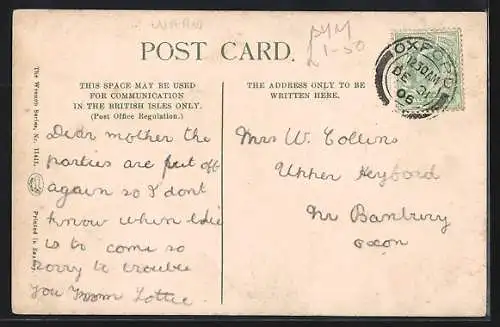 WARD
POST CARD.
PYM
£1-50
OXFORD
12.30AM
DE 31
06
THIS SPACE MAY BE USED
FOR COMMUNICATION
IN THE BRITISH ISLES ONLY.
(Post Office Regulation.)
THE ADDRESS ONLY TO BE
WRITTEN HERE.
The Wrench Series, No.
Printed in Saxony
Dear mother the
parties are put off
again so I dont
know when
is to come so
sorry to trouble
you from Lottie
Mrs W. Collins
Upper Heyford
Nr Banbury
Oxon